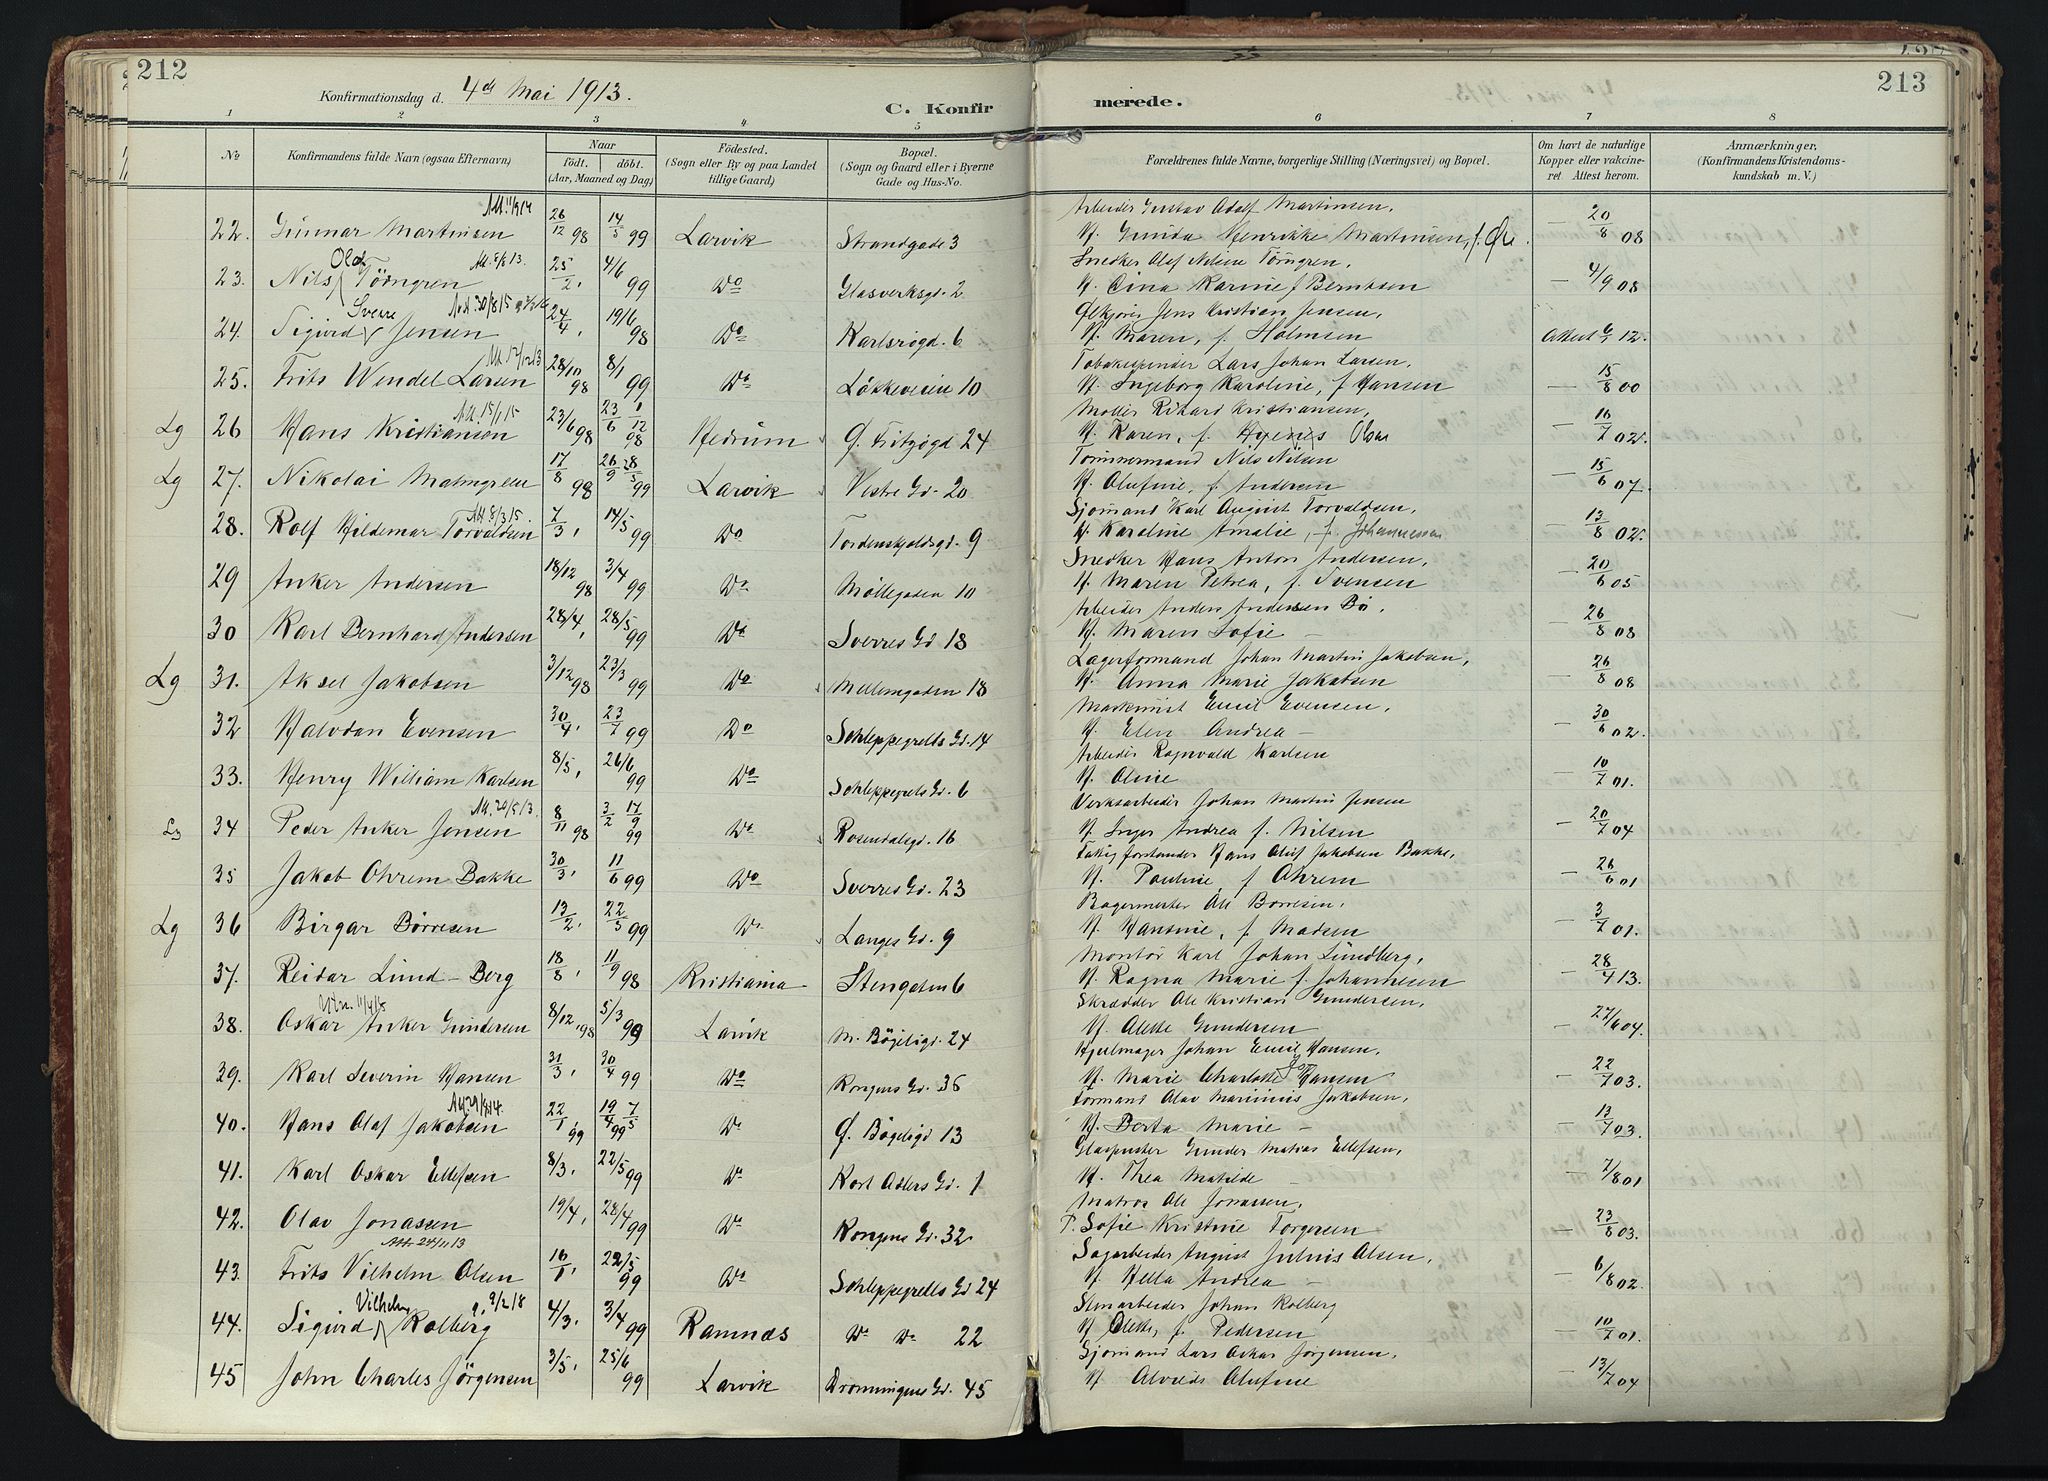 212
213
Konfirmationsdag d. 4de Mai 1913.
C. Konfir
merede.
1 2 3 4 5 6 7 8
No
Konfirmandens fulde Navn (ogsaa Efternavn)
Naar
födt. döbt.
(Aar, Maaned og Dag)
Födested.
(Sogn eller By og paa Landet
tillige Gaard)
Bopæl.
(Sogn og Gaard eller i Byerne
Gade og Hus-No.
Forældrenes fulde Navne, borgerlige Stilling (Næringsvei) og Bopæl.
Om havt de naturlige
Kopper eller vakcine-
ret. Attest herom.
Anmærkninger.
(Konfirmandens Kristendoms-
kundskab m. V.)
Att. 11/9 14
22. Gunnar Martinsen 26/12 98 14/5 99 Larvik Strandgade 3
Arbeider Gustav Adolf Martinsen,
H. Gunda Henrikke Martinsen, — 20/8 08
Olaf Att. 8/8 13.
23. Nils Törngren 25/2, 4/6 99 Do Glasverksgd. 2
Snedker Olaf Nilsen Törngren,
H. Karine f Berntsen — 4/9 08
Sverre
24. Sigurd Jensen 24/4, 19/6 98 Do Karlsrogd. 6
Jens Kristian Jensen,
H. Maren, f. Holmsen Attest 12.
Att. 12/12 13
25. Frits Wendel Larsen 28/10 98 8/1 99 Do Løkkeveien 10
Tobakspinder Lars Johan Larsen,
H. Ingeborg Karoline, f Hansen — 15/8 00
Att. 15/1 15
Lg 26 Hans Kristiansen 23/6 98 23/6 1/12 98 Hedrum Ø. Fritzøgd 24
Møller Rikard Kristiansen,
H. Karen, f. Olsen — 16/7 02.
Lg 27. Nikolai Malmgren 17/8 98 26/9 28/5 99 Larvik Vestre Gd. 20
Tömmermand Nils Nilsen
H. Olufine, f. Andersen — 15/6 07.
Att 8/3 15
28. Rolf Hildemar Torvaldsen 7/3, 14/5 99 Do Tordenskjoldsgd. 9
Sjömand Karl August Torvaldsen,
H. Karoline Amalie, f. Johannessen — 13/8 02.
29 Anker Andersen 18/12 98 3/4 99 Do Möllegaden 10
Snedker Hans Anton Andersen,
H. Maren Petrea, f. Svensen — 20/6 05
30 Karl Bernhard Andersen 28/4, 28/5 99 Do Sverres Gd 18
Arbeider Anders Andersen Bö,
H. Maren Sofie — — 26/8 08
Lg 31. Aksel Jakobsen 3/12 98 23/3 99 Do Mellemgaden 18
Lagerformand Johan Martin Jakobsen,
H. Anna Marie Jakobsen — 26/8 08
32 Halvdan Evensen 30/4, 23/7 99 Do Schleppegrells Gd. 14
Maskinist Emil Evensen,
H. Elen Andrea — — 30/6 02.
33. Henry William Karlsen 8/5, 26/6 99 Do Schleppegrels Gd. 6
Arbeider Ragnvald Karlsen
H. Oline — 10/7 01.
Att. 20/5 13.
Lg 34 Peder Anker Jensen 8/11 98 3/2 17/9 99 Do Rosendalsgd. 16
Verksarbeider Johan Martin Jensen
H. Inger Andrea f. Nilsen — 20/7 04
35 Jakob Ohrem Bakke 30/3, 11/6 99 Do Sverres Gd. 23
Hans Oluf Jakobsen Bakke,
H. Pauline, f Ohrem — 26/6 01
Lg 36 Birgar Börresen 13/2, 22/5 99 Do Langes Gd. 9
Bagermester Ole Borresen,
H. Hansine, f. Madsen — 3/7 01.
37. Reidar Lund-Berg 18/8, 11/9 98 Kristiania Stengaten 6
Montör Karl Johan Lundberg,
H. Ragna Marie f. Johannesen — 28/4 13.
11/4 15
38. Oskar Anker Gundersen 8/12, 98 5/3 99 Larvik M. Bögeligd. 24
Skrædder Ole Kristian Gundersen,
H. Olette Gundersen — 27/6 04.
39. Karl Severin Hansen 31/3, 30/4 99 Do Kongens Gd. 36
Hjulmager Johan Emil Hansen,
H. Marie Charlotte Hansen — 22/7 03.
40. Hans Olaf Jakobsen 22/1 99 19/4 99 7/5 Do Ø. Bögeligd 13
Formand Olav Marinius Jakobsen,
H. Berta Marie — — 13/7 03.
41. Karl Oskar Ellefsen 8/3, 22/5 99 Do Karl Adlers Gd. 1
Glaspuster Gunder Matias Ellefsen,
H. Thea Matilde — — 7/8 01
42. Olav Jonassen 19/4, 28/4 99 Do Kongens Gd. 32
Matros Ole Jonassen,
P. Sofie Kristine Torgersen — 23/8 03.
Att. 24/11 13
43. Frits Vilhelm Olsen 16/1, 22/5 99 Do Schleppegrells Gd 24
Sagarbeider August Julius Olsen,
H. Hella Andrea — — 6/8 02.
Vilhelm 9/2 18
44. Sigurd Kolberg 4/3, 3/4 99 Ramnæs Do Do 22
Stenarbeider Johan Kolberg
H. Olette, f. Pedersen — 10/7 01.
45 John Charles Jörgensen 3/5, 25/6 99 Larvik Dronningens Gd. 45
Sjömand Lars Oskar Jörgensen,
H. Olufine — 13/7 04